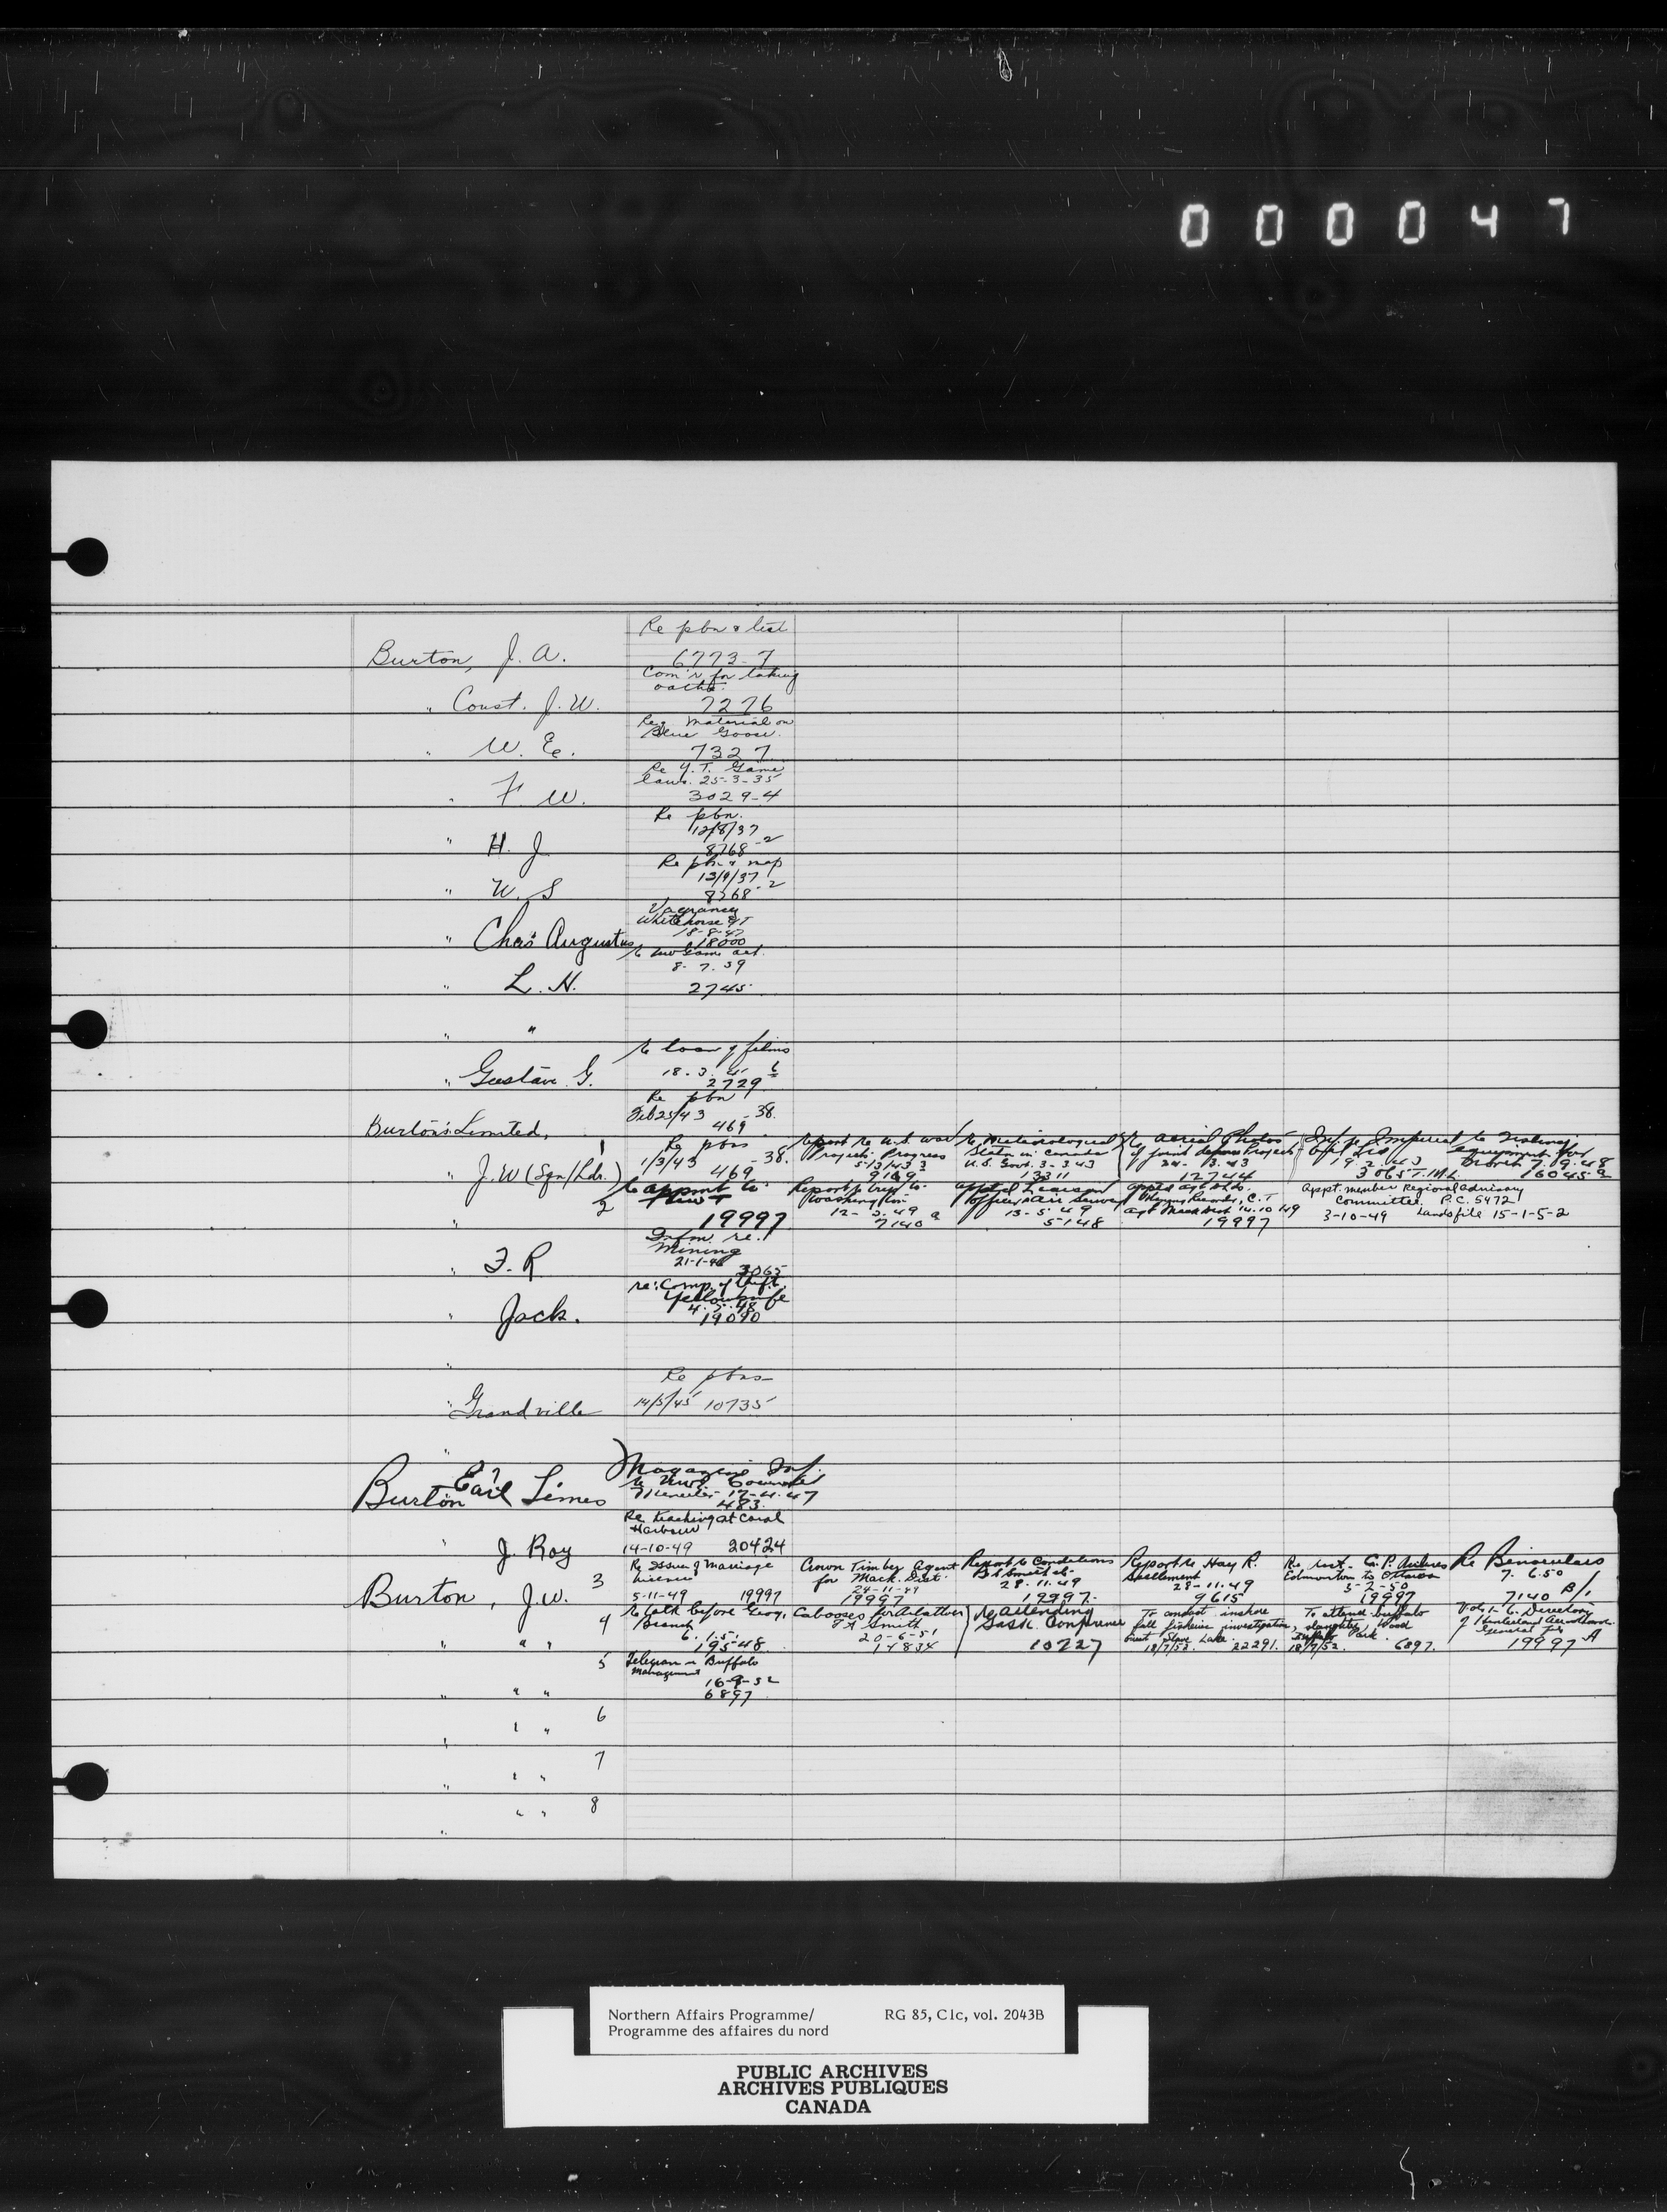 000047
Re pbn & list
Burton, J. A.
6773-7
Com'r for taking
oaths.
" Const. J. W.
7276
Req. Material on
Blue Goose.
" W. E.
7327
Re Y.T. Game
laws. 25-3-35
" F. W.
3029-4
Re pbn.
12/8/37
" H. J
8768-2
Re pbn & map
13/9/37
" W. S
8768-2
Vagrancy
Whitehorse YT
18-8-47
" Chas Augustus
18000
Game act.
8-7-39
" L. H.
2745
" "
Re loan of films
18-3-41
" Gustave G.
2729
Re pbn
Feb 25/43 -38.
Burton's Limited,
469
Re pbns
1/3/43 -38.
" J.W (Sqn/Ldr.) 1
469
Report re U.S. war
Projects Progress
5/3/43
9169
Re Meteorological
Statn in Canada
U.S. Govt. 3-3-43
13311
Re Aerial Photos
of joint defence Projects
12744
Re Imperial
Oil Ltd
Re Sisting
equipment for
North 7.09.48
16045-2
Re appmt to
2
19997
Report re trip to
Washington
12-3-49
7140
Appt'd Liaison
Officer Air Survey
13-5-49
5148
Mining Recorder, C.T
14.10.49
19997
Appt. member Regional advisory
Committee P.C. 5472
3-10-49 Lands file 15-1-5-2
Infm. re.
Mining
" F. R
3065
re: Comp. of theft.
Yellowknife
4.5.48
" Jack.
19090
"
Re pbns
" Grandville
14/5/45 10735
"
Magazine Inf.
17-4-47
Burton Earl Simes
483
Re teaching at Coral
Harbour
" J. Roy
14-10-49 20424
Re Issue of Marriage
Licenses
Burton, J.W. 3
5-11-49 19997
Crown Timber Agent
for Mack. Dist.
24-11-49
19997
Report re Conditions
28.11.49
19997
Report re Hay R.
Settlement
28-11-49
9615
Re inst. C.P. Airlines
Edmonton to Ottawa
3-2-50
19997
Re Binoculars
7.6.50
7140 B/1
Re talk before Geog.
Branch
" " " 4
6.1.51
19548
Cabooses for
Ft Smith
20-6-51
14834
Re attending
Sask. Conference
10727
To conduct inshore
fall fisheries investigation,
Great Slave Lake.
18/7/52. 22291.
To attend buffalo
slaughter, Wood
Buffalo Park.
18/7/52. 6897.
19997 A
5
Telegram Buffalo
Management
16-9-52
" " "
6897
6
" " "
7
" " "
8
" "
"
Northern Affairs Programme/ RG 85, C1c, vol. 2043B
Programme des affaires du nord
PUBLIC ARCHIVES
ARCHIVES PUBLIQUES
CANADA